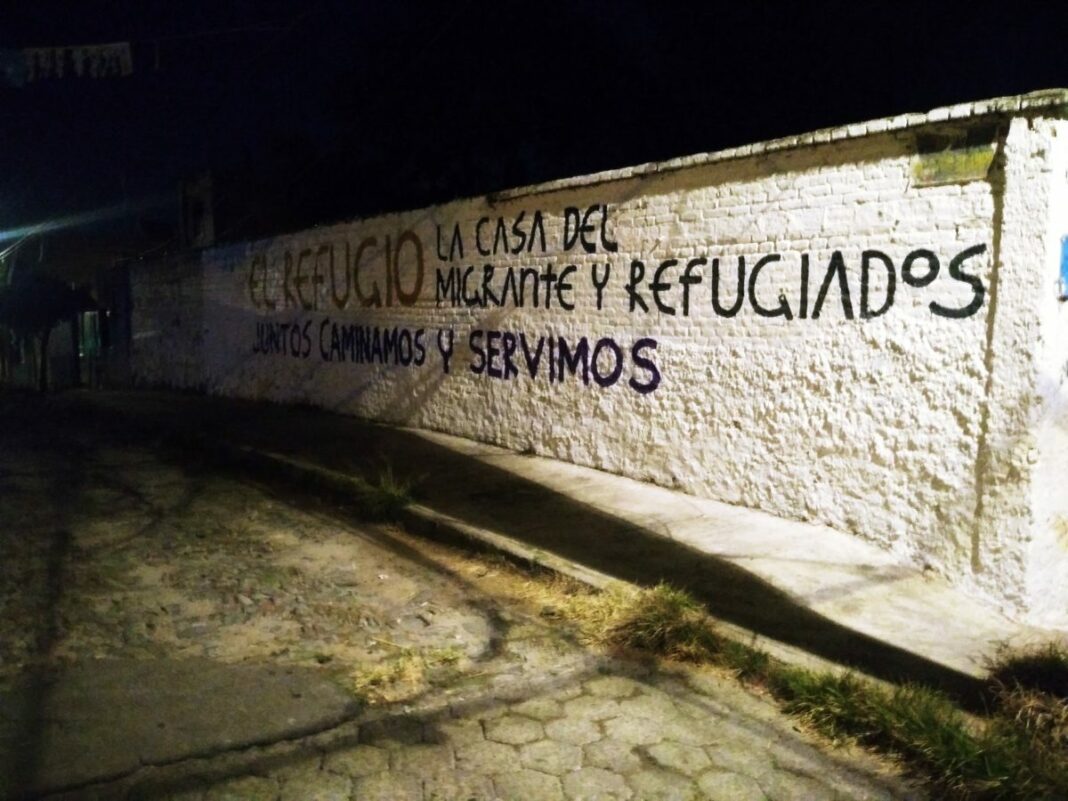 EL REFUGIO LA CASA DEL
MIGRANTE Y REFUGIADOS
JUNTOS CAMINAMOS Y SERVIMOS